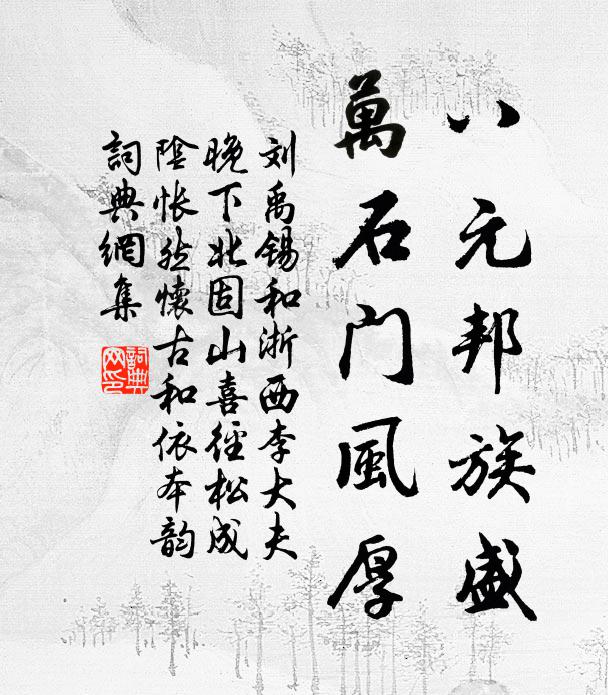 八元邦族盛
萬石門風厚
刘禹锡和浙西李大夫
晚下北固山喜徑松成
陰怅然懷古和依本韵
詞典網集
詞典
网印